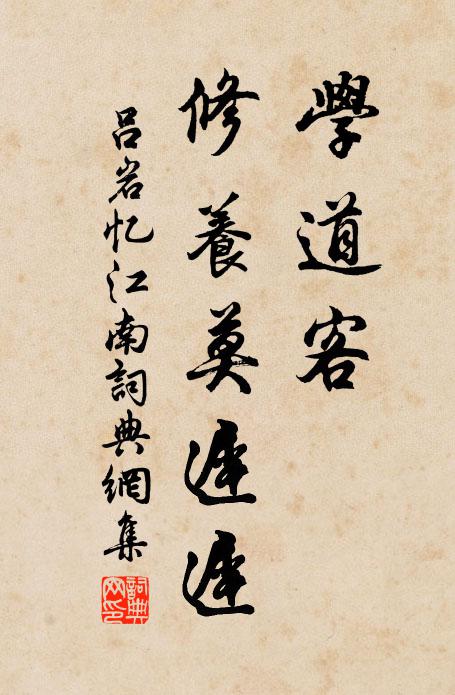 學道客
修養莫遲遲
吕岩忆江南詞典網集
詞典网印